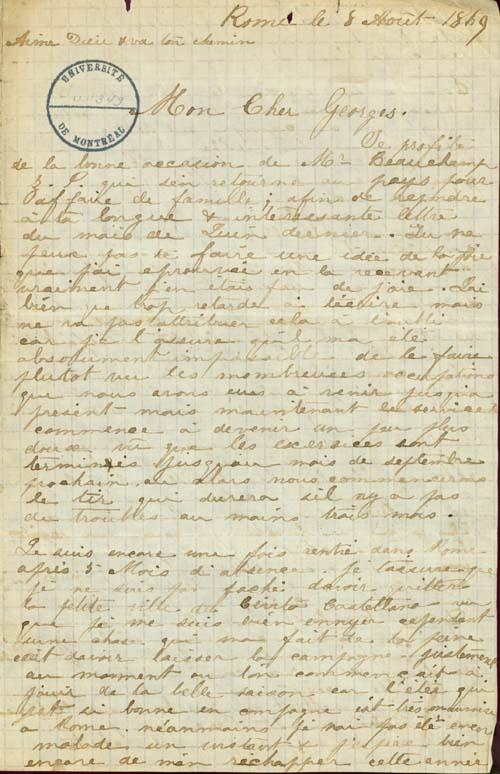 Rome le 8 Août 1869
Aime Dieu & va ton chemin
UNIVERSITÉ
DE MONTRÉAL
Mon Cher Georges.
Je profite
de la bonne occasion de Mr Beauchamp
qui s'en retourne au pays pour
affaire de famille, afin de repondre
à ta longue & intéressante lettre
du mois de Juin dernier. Tu ne
peux pas te faire une idée de la joie
que j'ai eprouvée en la recevant
vraiment j'en étais fou de joie. J'ai
bien trop retardé a t'écrire mais
ne va pas attribuer cela a l'oubli
car je t'assure qu'il m'a été
absolument impossible de le faire
plutot vu les nombreuses occupations
que nous avons eues à venir jusqu'a
présent mais maintenant le service
commence à devenir un peu plus
doux vu que les exercices sont
terminés jusqu'au mois de septembre
prochain, au alors nous commencerons
le tir qui durera s'il n'y a pas
de troubles au moins trois mois.
Je suis encore une fois rentré dans Rome
après 5 Mois d'absence. Je t'assure que
je ne suis pas faché d'avoir quitter
la petite ville de Civita Castellana vu
que je me suis bien ennuyer cependant
une chose qui m'a fait de la peine
c'est d'avoir laisser la campagne justement
au moment ou l'on commençait à
jouir de la belle saison car l'été qui
est si bonne en campagne est très mauvaise
à Rome. néanmoins je n'ai pas été encore
malade un instant & j'espère bien
encore de m'en rechapper cette année